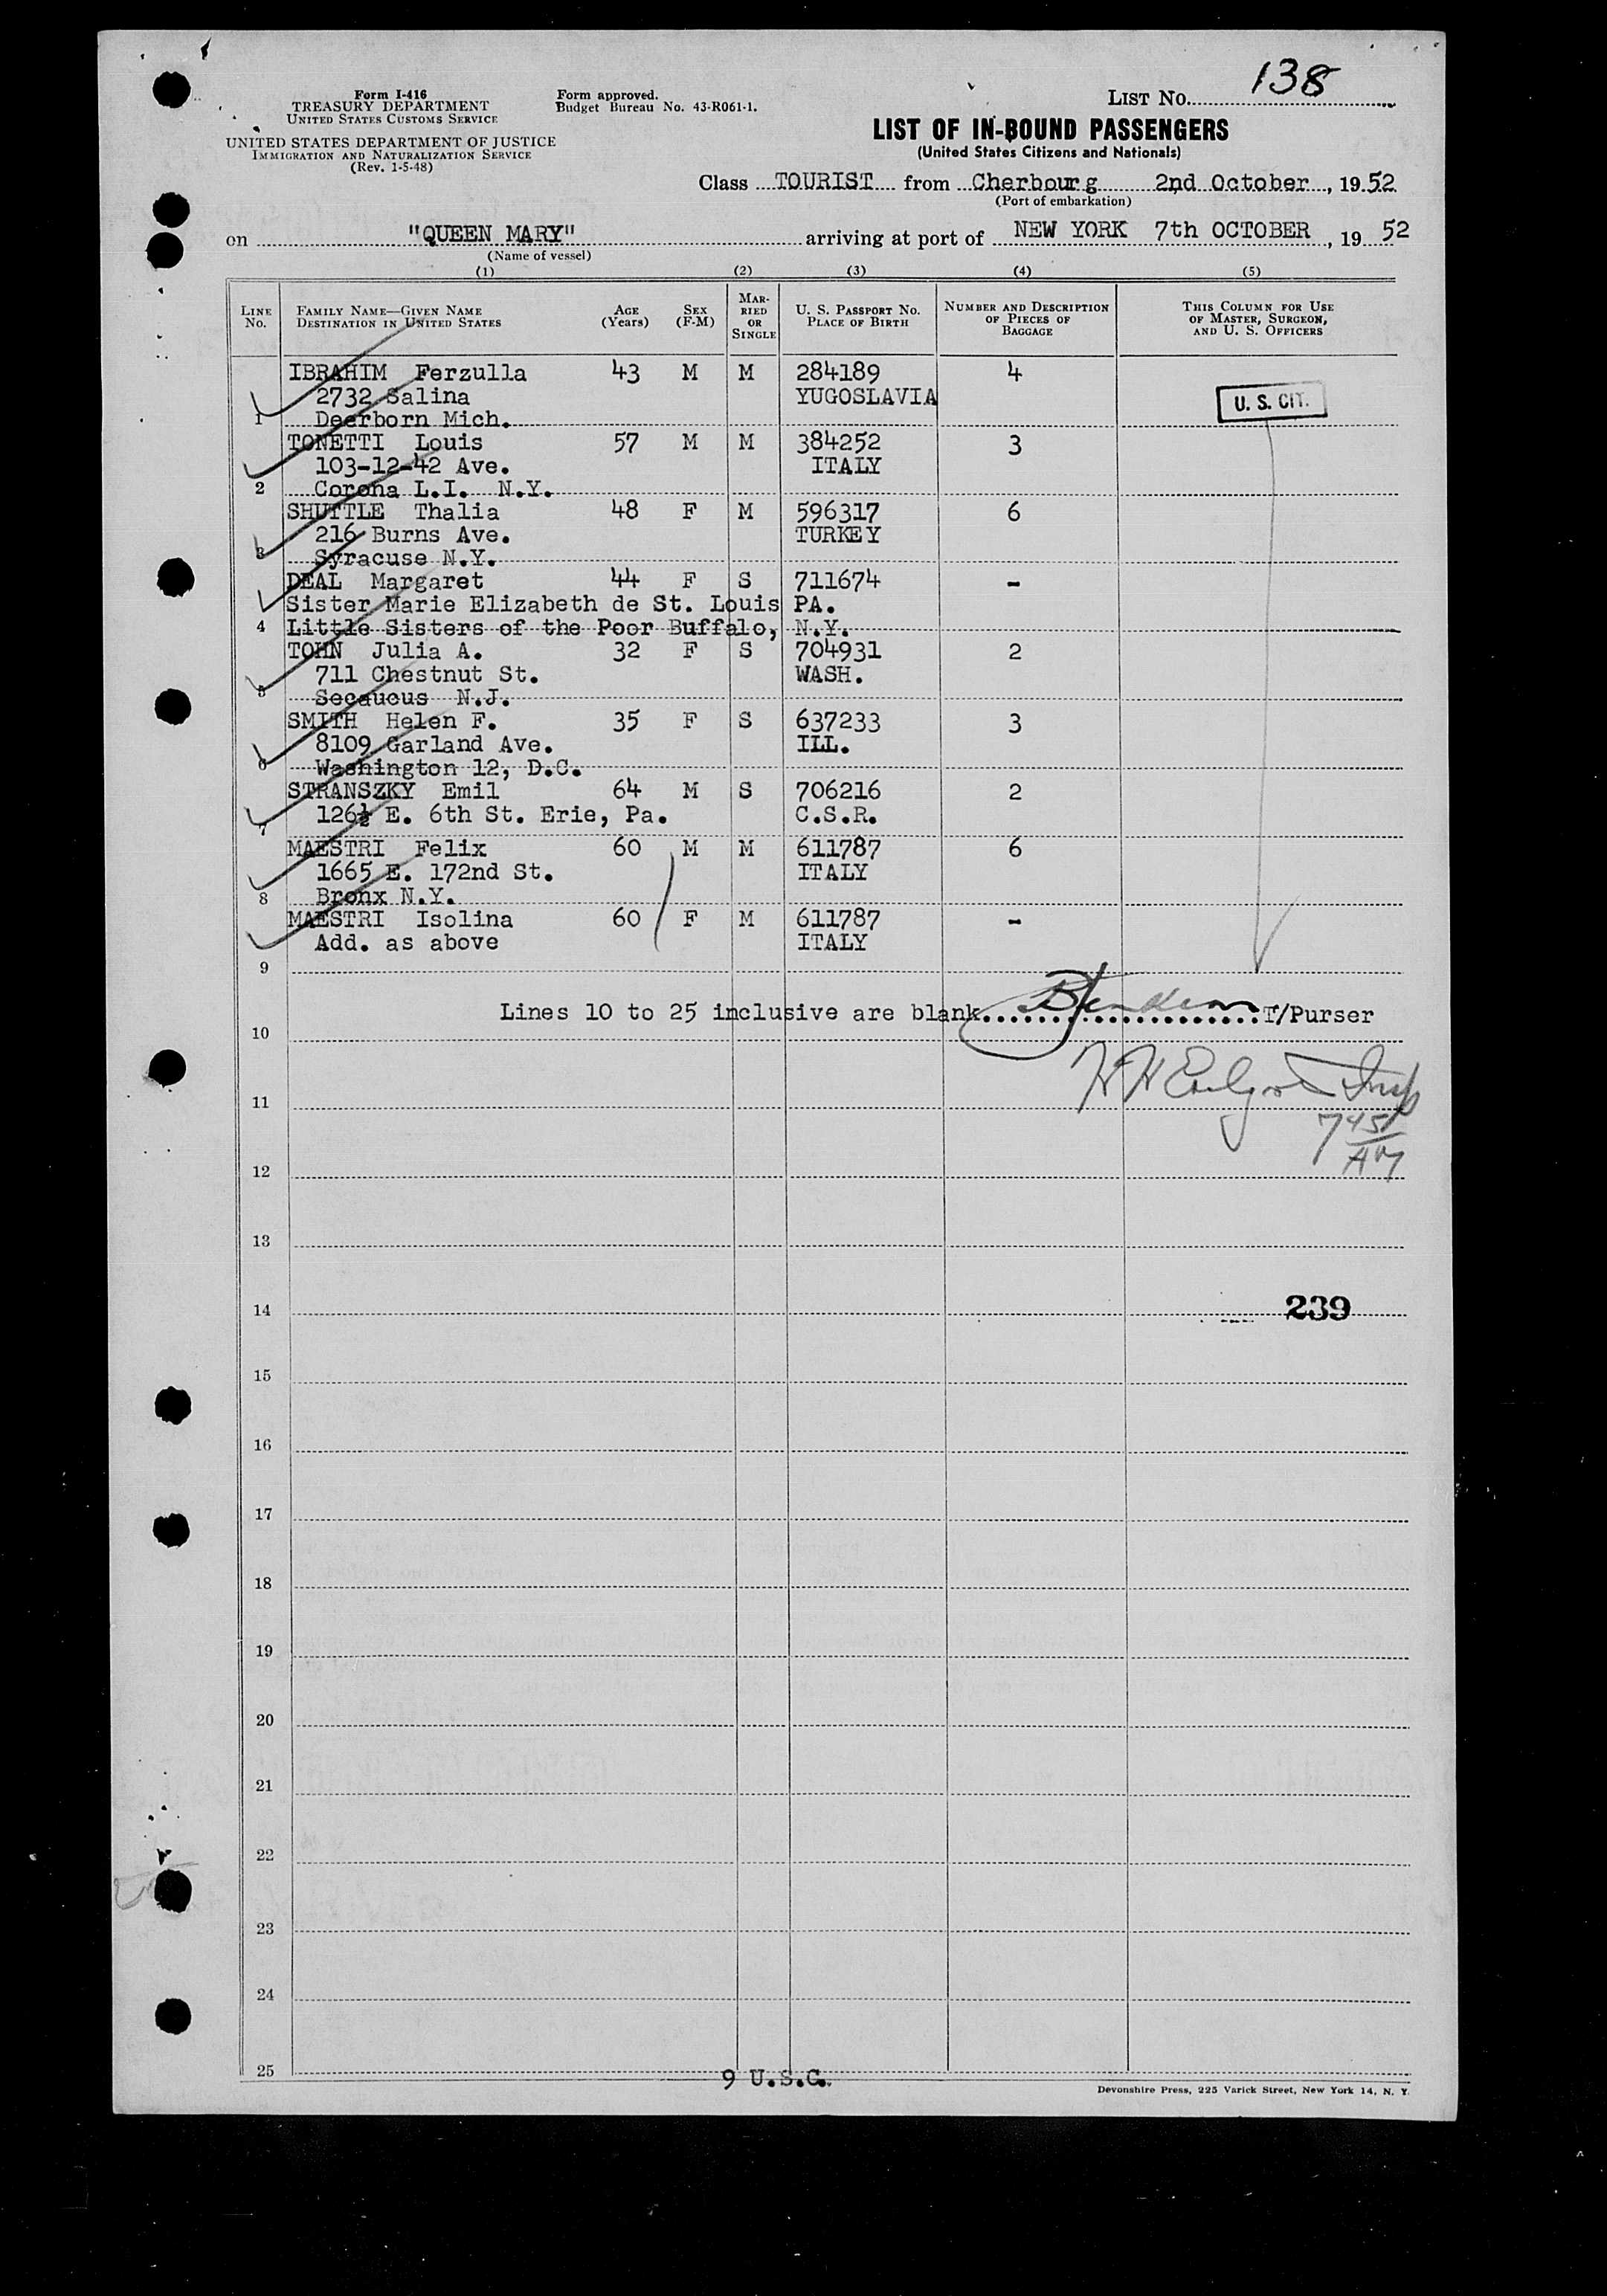 138
LIST NO.
Form I-416
TREASURY DEPARTMENT
UNITED STATES CUSTOMS SERVICE
UNITED STATES DEPARTMENT OF JUSTICE
IMMIGRATION AND NATURALIZATION SERVICE
(Rev. 1-5-48)
Form approved.
Budget Bureau No. 43-R061-1.
LIST OF IN-BOUND PASSENGERS
(United States Citizens and Nationals)
Class TOURIST from Cherbourg 2nd October, 1952
(Port of embarkation)
on "QUEEN MARY" arriving at port of NEW YORK 7th OCTOBER, 19 52
(Name of vessel)
(1) (2) (3) (4) (5)
LINE No. FAMILY NAME—GIVEN NAME DESTINATION IN UNITED STATES AGE (Years) SEX (F-M) MARRIED OR SINGLE U. S. PASSPORT NO. PLACE OF BIRTH NUMBER AND DESCRIPTION OF PIECES OF BAGGAGE THIS COLUMN FOR USE OF MASTER, SURGEON, AND U. S. OFFICERS
IBRAHIM Ferzulla 43 M M 284189 4
2732 Salina YUGOSLAVIA U. S. CIT.
1 Deerborn Mich.
TONETTI Louis 57 M M 384252 3
103-12-42 Ave. ITALY
2 Corona L.I. N.Y.
SHUTTLE Thalia 48 F M 596317 6
216 Burns Ave. TURKEY
3 Syracuse N.Y.
DEAL Margaret 44 F S 711674 -
Sister Marie Elizabeth de St. Louis PA.
4 Little Sisters of the Poor Buffalo, N.Y.
TOHN Julia A. 32 F S 704931 2
711 Chestnut St. WASH.
5 Secaucus N.J.
SMITH Helen F. 35 F S 637233 3
8109 Garland Ave. ILL.
6 Washington 12, D.C.
STRANSZKY Emil 64 M S 706216 2
126½ E. 6th St. Erie, Pa. C.S.R.
7
MAESTRI Felix 60 M M 611787 6
1665 E. 172nd St. ITALY
8 Bronx N.Y.
MAESTRI Isolina 60 F M 611787 -
Add. as above ITALY
9
Lines 10 to 25 inclusive are blank T/Purser
10
Insp
11
7 45/AM
12
13
239
14
15
16
17
18
19
20
21
22
23
24
25
9 U.S.C.
Devonshire Press, 225 Varick Street, New York 14, N. Y.